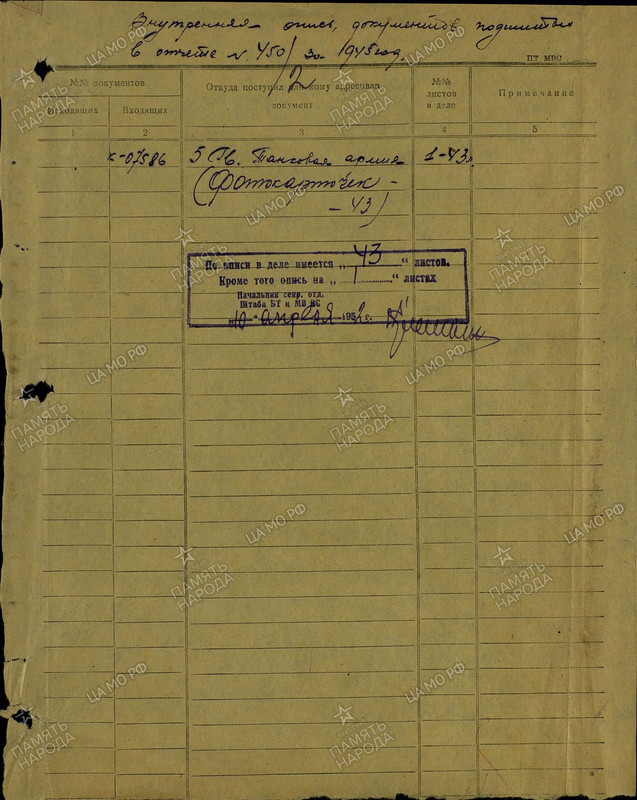 Внутренняя опись, документов подшитых
в отчете № 450/ за 1945 год.
2
ПТ МВС
№№ документов
Исходящих
Входящих
Откуда поступил или кому адресован документ
№№ листов в деле
Примечание
1 2 3 4 5
к-07586 5 Гв. Танковая армия 1-43л.
(Фотокарточек -
- 43)
По описи в деле имеется „ 43 “ листов.
Кроме того опись на „ 1 “ листах
Начальник секр. отд.
Штаба БТ и МВ ВС
„10“ апреля 1952 г.
ЦА МО РФ
ПАМЯТЬ
НАРОДА